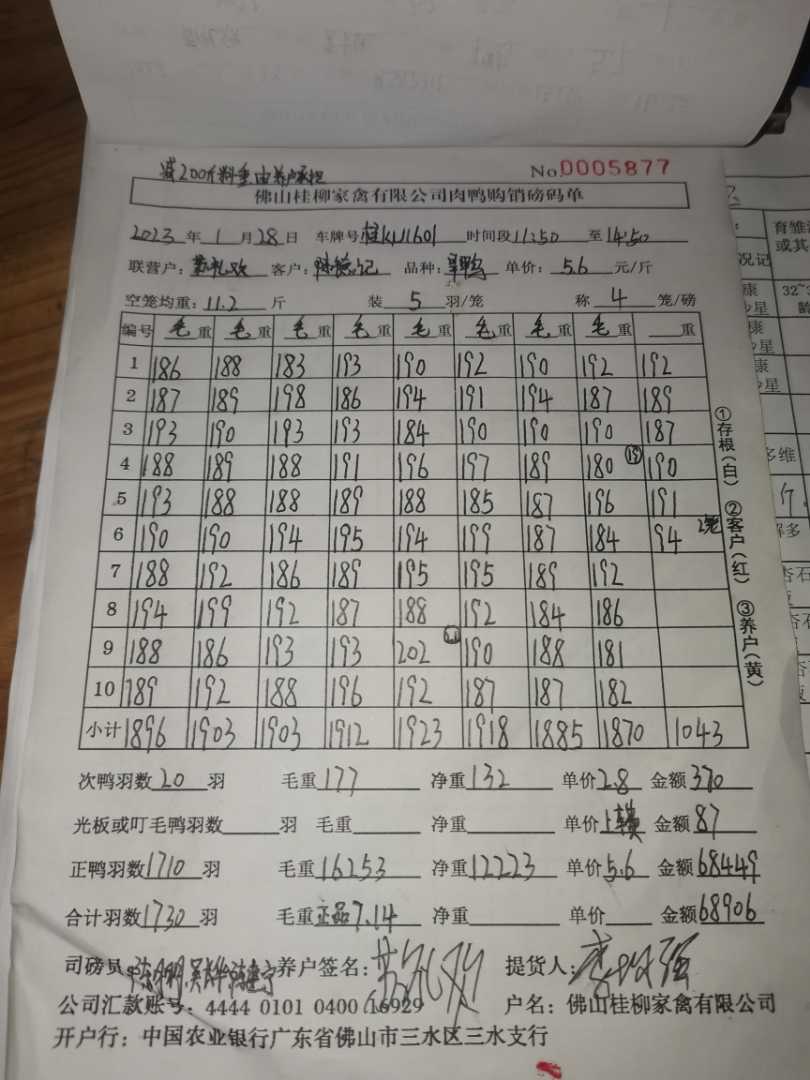 减200斤料重由养户承担
No.0005877
佛山桂柳家禽有限公司肉鸭购销磅码单
2023年1月28日 车牌号 桂KW1601 时间段11:50至14:50
联营户: 客户: 品种: 单价: 5.6 元/斤
空笼均重: 11.2 斤 装 5 羽/笼 称 4 笼/磅
编号 毛重 毛重 毛重 毛重 毛重 毛重 毛重 毛重 重
1 186 188 183 193 190 192 190 192 192
2 187 189 198 186 194 191 194 187 189
3 193 190 193 193 184 190 190 190 187
4 188 189 188 191 196 197 189 180 ⑲ 190
5 193 188 188 189 188 185 187 196 191
6 190 190 194 195 194 199 187 184 94 2笼
7 188 192 186 189 195 195 189 192
8 194 199 192 187 188 192 184 186
9 188 186 193 193 202 190 188 181
10 189 192 188 196 192 187 187 182
小计 1896 1903 1903 1912 1923 1918 1885 1870 1043
①存根(白) ②客户(红) ③养户(黄)
次鸭羽数20羽 毛重177 净重132 单价2.8 金额370
光板或叮毛鸭羽数 羽 毛重 净重 单价 金额87
正鸭羽数1710羽 毛重16253 净重12223 单价5.6 金额68449
合计羽数1730羽 毛重正品7.14 净重 单价 金额68906
司磅员: 养户签名: 提货人:
公司汇款账号: 4444 0101 0400 16929 户名: 佛山桂柳家禽有限公司
开户行: 中国农业银行广东省佛山市三水区三水支行
育雏
或其
况记
康
沙星
32~
康
沙星
康
沙星
多维